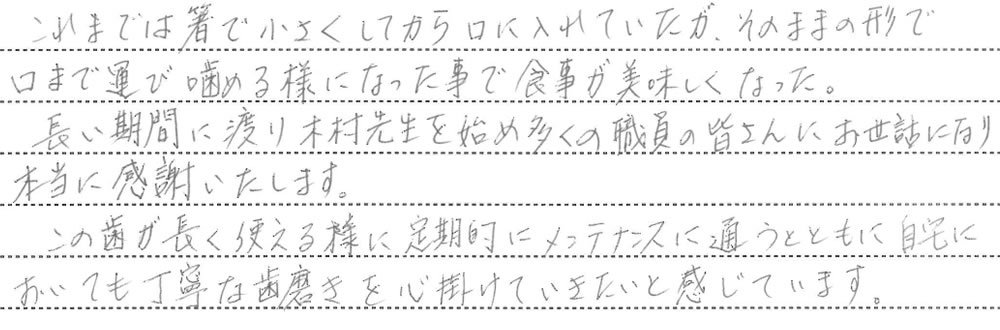 これまでは箸で小さくしてから口に入れていたが、そのままの形で
口まで運び噛める様になった事で食事が美味しくなった。
長い期間に渡り木村先生を始め多くの職員の皆さんにお世話になり
本当に感謝いたします。
この歯が長く使える様に定期的にメンテナンスに通うとともに自宅に
おいても丁寧な歯磨きを心掛けていきたいと感じています。